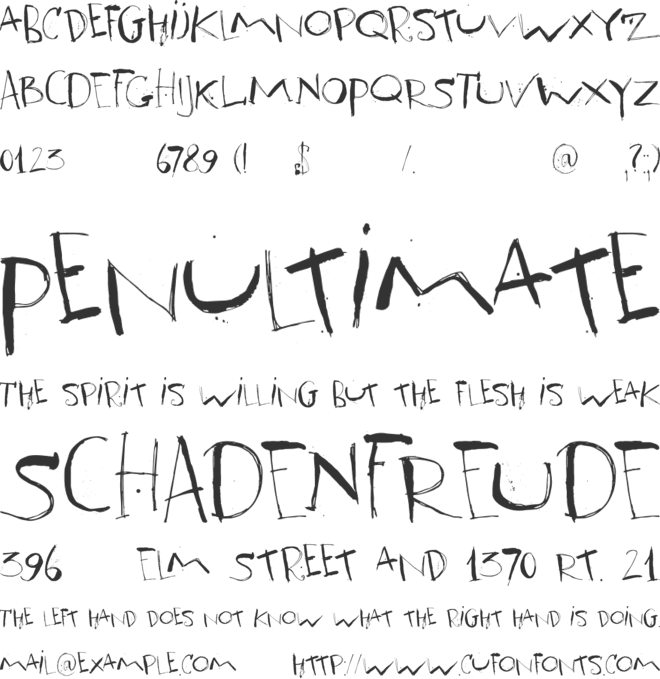 ABCDEFGHIJKLMNOPQRSTUVWXYZ
ABCDEFGHIJKLMNOPQRSTUVWXYZ
0123 6789 (! $ /. @ ?;)
PENULTIMATE
THE SPIRIT IS WILLING BUT THE FLESH IS WEAK
SCHADENFREUDE
396 ELM STREET AND 1370 RT. 21
THE LEFT HAND DOES NOT KNOW WHAT THE RIGHT HAND IS DOING.
MAIL@EXAMPLE.COM HTTP://WWW.CUFONFONTS.COM